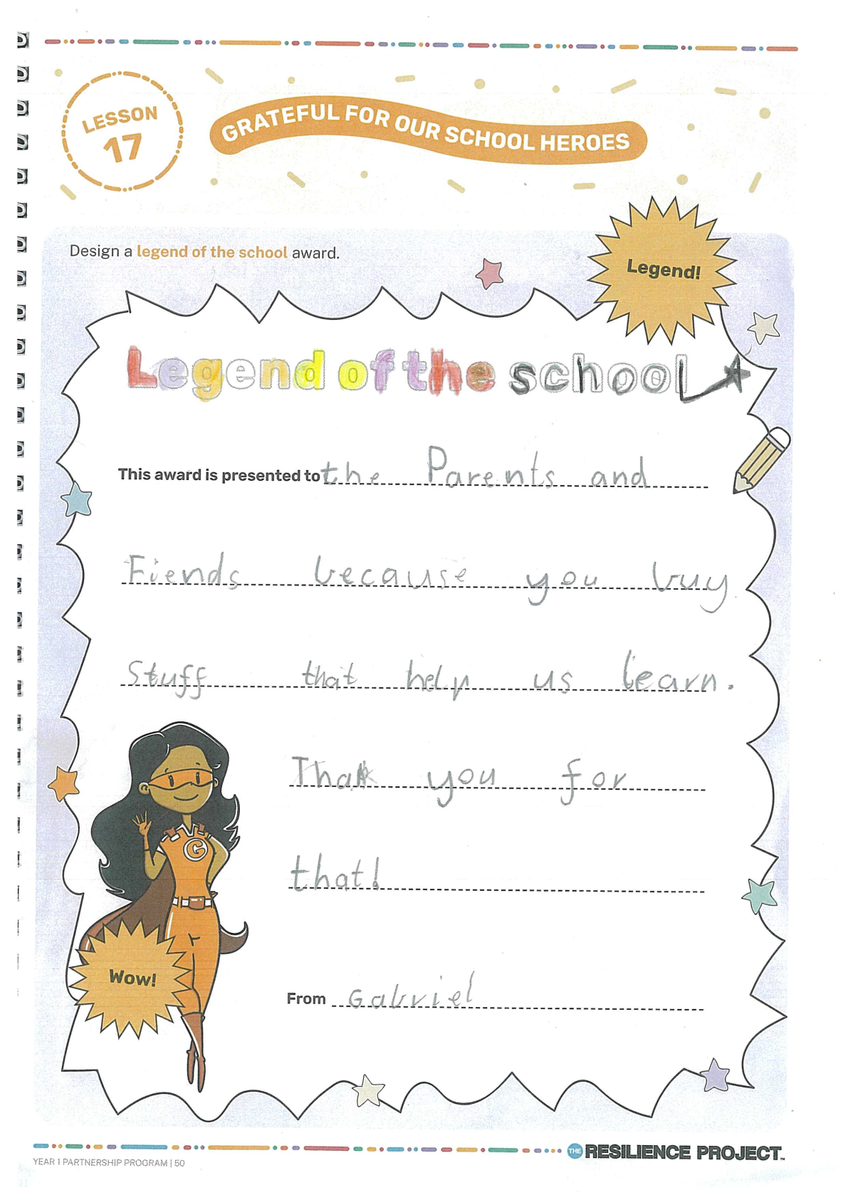 LESSON
17
GRATEFUL FOR OUR SCHOOL HEROES
Design a legend of the school award.
Legend!
Legend of the school
This award is presented to the Parents and
Fiends because you buy
Stuff that help us learn.
Thak you for
that!
G
Wow!
From Gabriel
YEAR 1 PARTNERSHIP PROGRAM | 50
THE RESILIENCE PROJECT